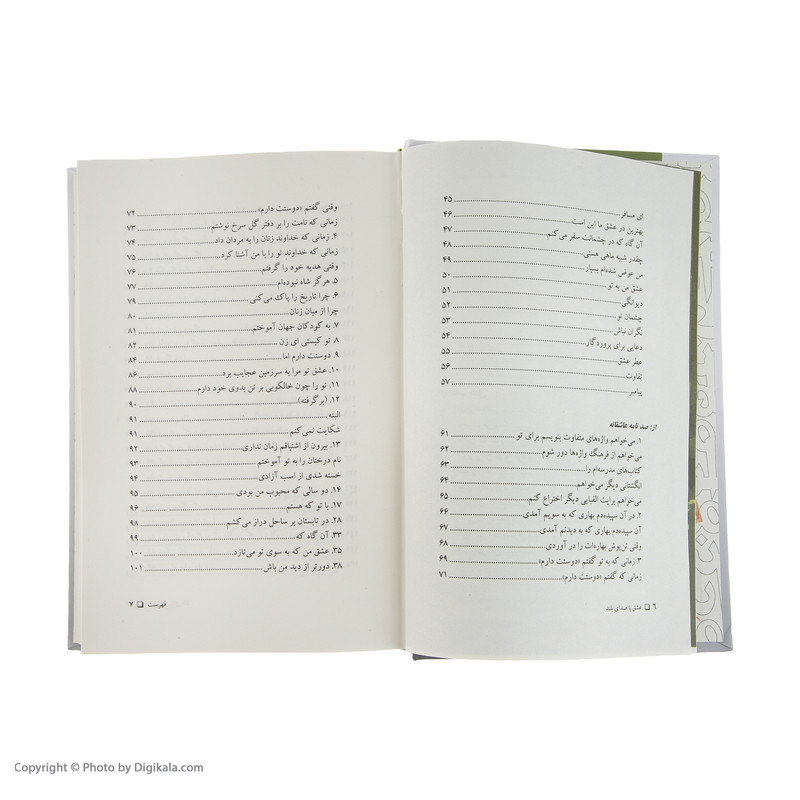 ای مسافر ۴۵
بهترین در عشق ما این است ۴۶
آن گاه که در چشمانت سفر می‌کنم ۴۷
چقدر شبیه ماهی هستی ۴۸
من عوض شده‌ام بسیار ۴۹
عشق من به تو ۵۰
دیوانگی ۵۱
چشمان تو ۵۲
نگران نباش ۵۳
دعایی برای پروردگار ۵۴
عطر عشق ۵۵
تفاوت ۵۶
پیامبر ۵۷
از: صد نامه عاشقانه
۱. می‌خواهم واژه‌های متفاوت بنویسم برای تو ۶۱
می‌خواهم از فرهنگ واژه‌ها دور شوم ۶۲
کتاب‌های مدرسه‌ام را ۶۳
انگشتانی دیگر می‌خواهم ۶۴
می‌خواهم برایت الفبایی دیگر اختراع کنم ۶۵
۲. در آن سپیده‌دم بهاری که به سویم آمدی ۶۶
آن سپیده‌دم بهاری که به دیدنم آمدی ۶۷
وقتی تن‌پوش بهاره‌ات را در آوردی ۶۸
۳. زمانی که به تو گفتم «دوستت دارم» ۶۹
زمانی که گفتم «دوستت دارم» ۷۱
۶ ❑ عشق با صدای بلند
وقتی گفتم «دوستت دارم» ۷۲
زمانی که نامت را بر دفتر گل سرخ نوشتم ۷۳
۴. زمانی که خداوند زنان را به مردان داد ۷۴
زمانی که خداوند تو را با من آشنا کرد ۷۵
وقتی هدیه خود را گرفتم ۷۶
۵. هرگز شاه نبوده‌ام ۷۷
۶. چرا تاریخ را پاک می‌کنی ۷۹
چرا از میان زنان ۸۰
۷. به کودکان جهان آموختم ۸۱
۸. تو کیستی ای زن ۸۲
۹. دوستت دارم اما ۸۴
۱۰. عشق تو مرا به سرزمین عجایب برد ۸۶
۱۱. تو را چون خالکوبی بر تن بدوی خود دارم ۸۸
۱۲. (برگرفته) ۹۰
البته ۹۱
شکایت نمی‌کنم ۹۱
۱۳. بیرون از اشتیاقم زمان نداری ۹۲
نام درختان را به تو آموختم ۹۳
خسته شدی از اسب آزادی ۹۴
۱۴. دو سالی که محبوب من بودی ۹۵
۱۷. با تو که هستم ۹۶
۲۸. در تابستان بر ساحل دراز می‌کشم ۹۸
۳۳. آن گاه که ۹۹
۳۵. عشق من که به سوی تو می‌تازد ۱۰۰
۳۸. دورتر از دید من باش ۱۰۱
فهرست ❑ ۷
Copyright © Photo by Digikala.com